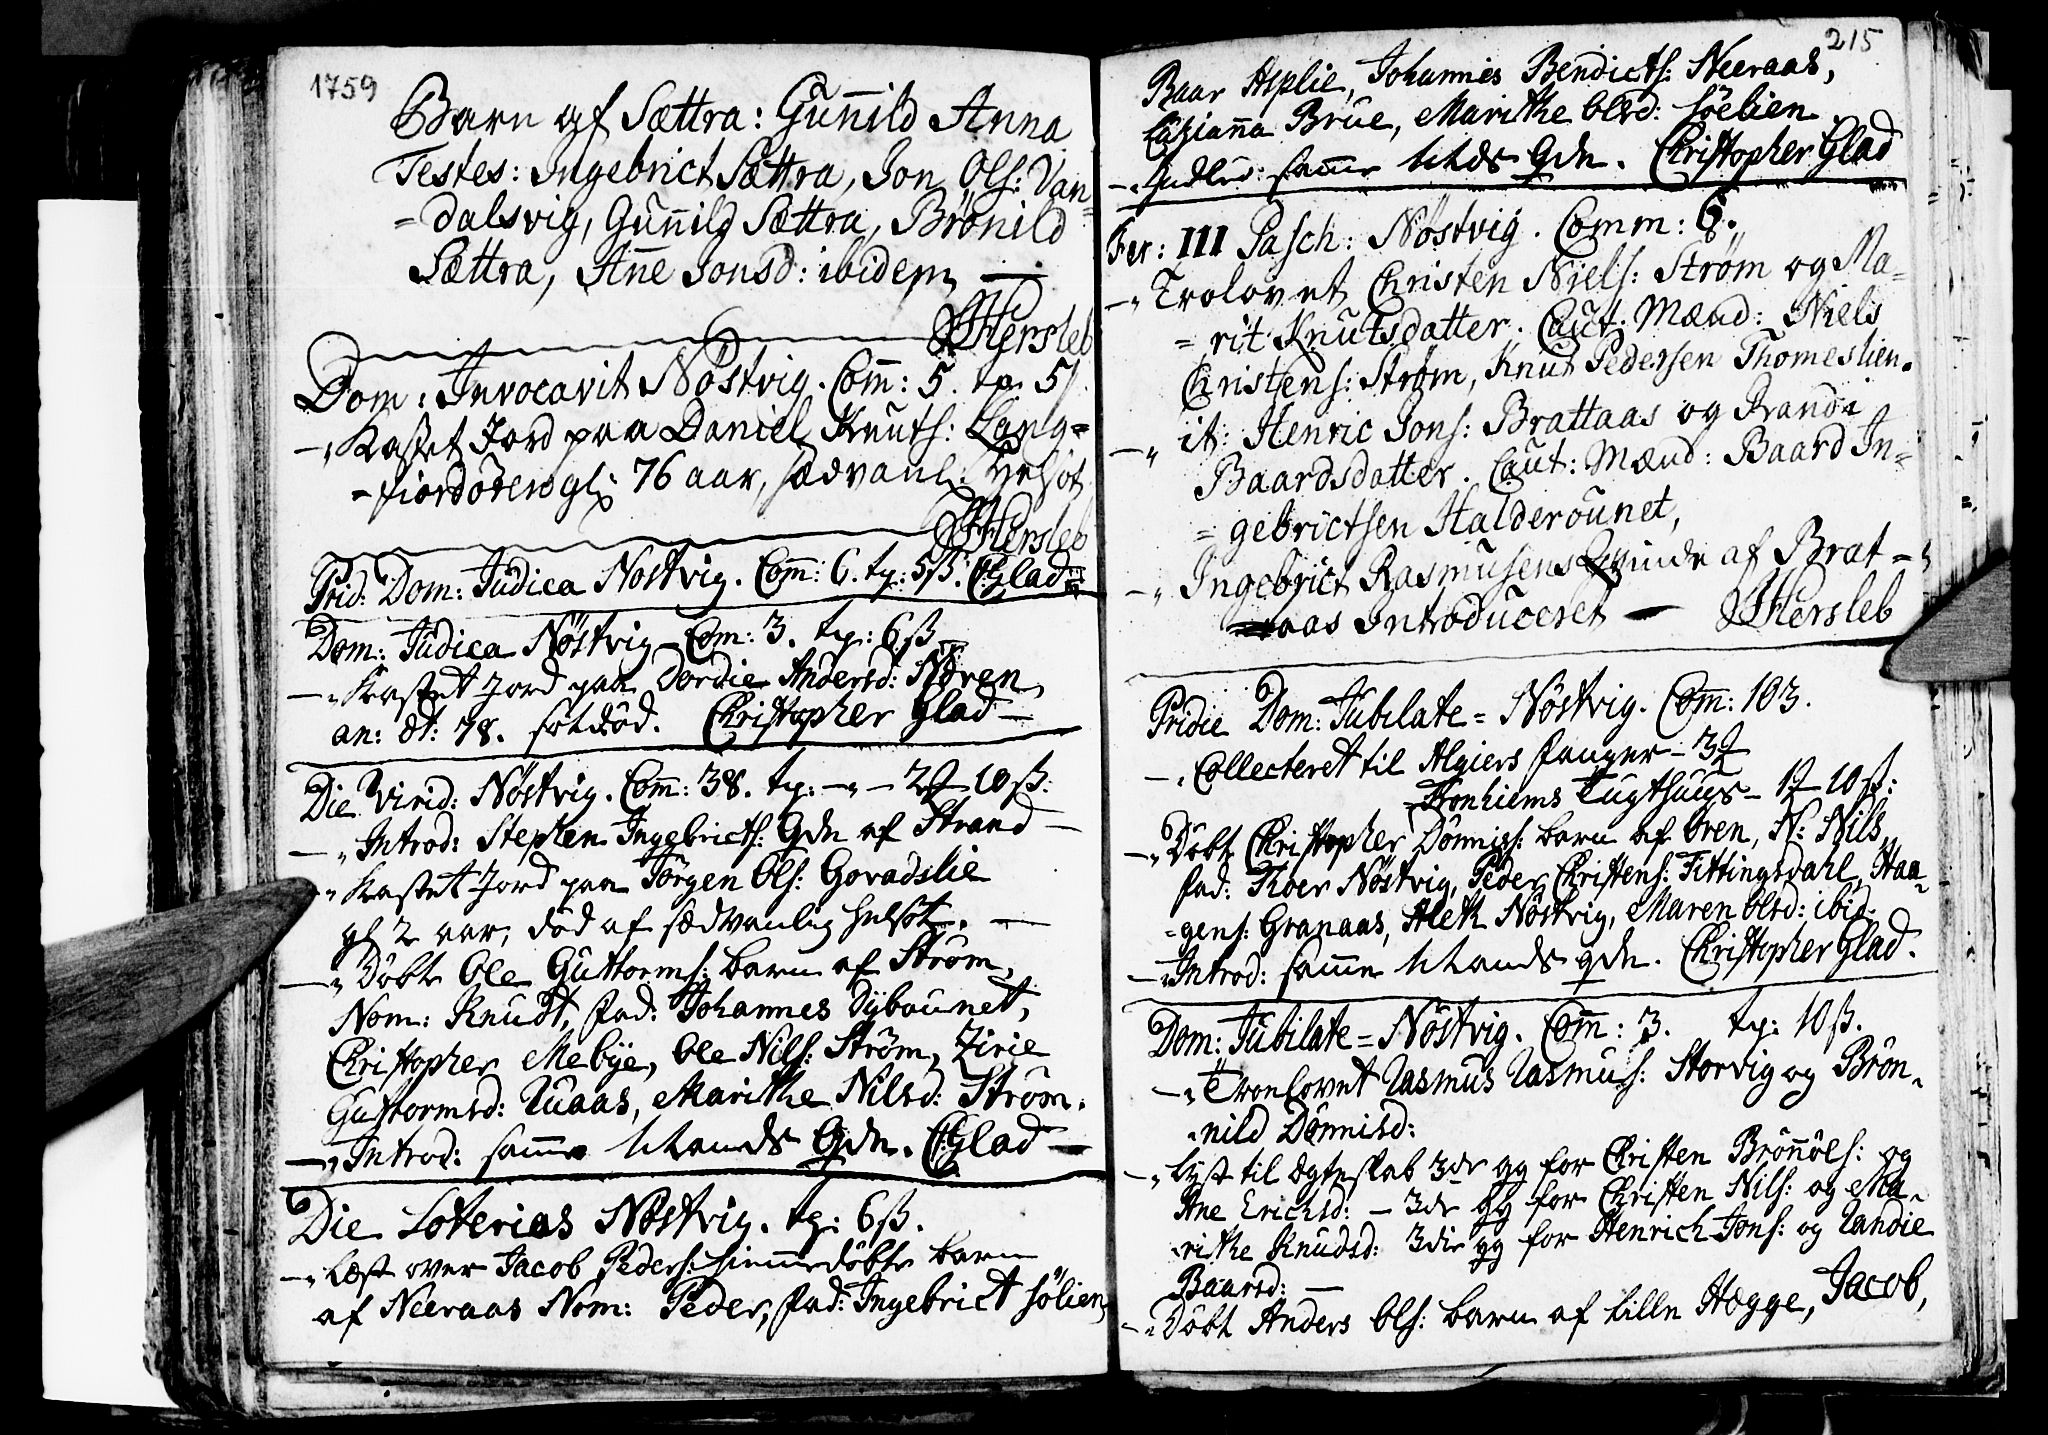 1759
Barn af Sættra: Gunnild Anna
Testes: Ingebrict Sættra, Jon Ols: Van=
=dalsvig, Gunnild Sættra, Brönild
Sættra, Anne Jonsd: ibidem
Hersleb
Dom: Invocavit Nöstvig. Comm: 5. tp. 5
Kastet Jord paa Daniel Knuts: Lang=
=fiordören gl: 76 aar, sædvanl: Helsot
Hersleb
Prid: Dom: Judica Nöstvig. Comm: 6. tp: 5ß. CGlad
Dom: Judica Nöstvig Com: 3. tp: 6ß
Kastet Jord paa Dordie Andersd: Nören
an: æt: 78. sotdöd. Christopher Glad
Die Virid: Nöstvig. Comm: 38. tp: 2 10ß:
Introd: Stephen Ingebricts: Qde af Strand
Kastet Jord paa Jörgen Ols: Goradslie
gl 2 aar, död af sædvanlig helsot.
Döbt Ole Guttorms: barn af Ström,
Nom: Knudt, fad: Johannes Dybounet,
Christopher Mebÿe, Ole Nils: Ström, Zirie
Guttormsd: Ruaas, Marithe Nilsd: Ström.
Introd: samme Mands Qde. CGlad
Die Soterias Nöstvig. tp: 6ß.
Læst over Jacob Peders: hiemmedöbte barn
af Neeraas Nom: Peder, fad: Ingebrict Sölien,
215
Baar Asplie, Johannes Bendicts: Neeraas,
Lusianna Brue, Marithe Olsd: Söelien
Indled: samme Mds Qde. Christopher Glad
Fer: III Pasch: Nöstvig. Comm: 6.
Trolovet Christen Niels: Ström og Ma=
=rit Knutsdatter. Caut: Mænd: Niels
Christens: Ström, Knut Pedersen Thomeslien.
it: Henric Jons: Brattaas og Randi
Baardsdatter. Caut: Mænd: Baard In=
=gebrictsen Halderounet,
Ingebrict Rasmusens Qvinde af Brat=
=aas Introduceret Hersleb
Pridie Dom: Jubilate = Nöstvig. Comm: 103.
Collecteret til Algiers fanger 3
Tronhiems Tugthuus 1 10ß:
Döbt Christopher Dönnis: barn af Oren, N: Nils,
fad: Roer Nöstvig, Peder Christens: Tittingsdahl, Haa=
=gens: Granaas, Aleth Nöstvig, Maren Olsd: ibid:
Introd: samme Mands qde. Christopher Glad.
Dom: Jubilate = Nöstvig. Comm: 3. tp: 10ß.
Troelovet Rasmus Rasmus: Storvig og Brön=
nild Dönnisd:
Lyst til Ægteskab 3de gg for Christen Brönnöls: og
Ane Erichsd: 3de gg for Christen Nils: og Ma=
rithe Knudsd: 3die gg for Henrich Jons: og Randie
Baarsd:
Döbt Anders Ols: barn af Lille Hegge, Jacob,